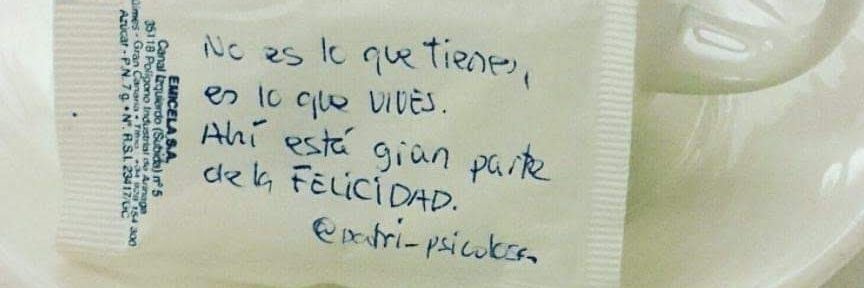 No es lo que tienes,
es lo que VIVES.
Ahí está gran parte
de la FELICIDAD.
@patri_psicologa
EMICELA S.A.
Canal Izquierdo (Subida) nº 5
35118 Polígono Industrial de Arinaga
Gran Canaria
Azúcar - P.N. 7 g. - Nº. R.S.I. 23417/GC